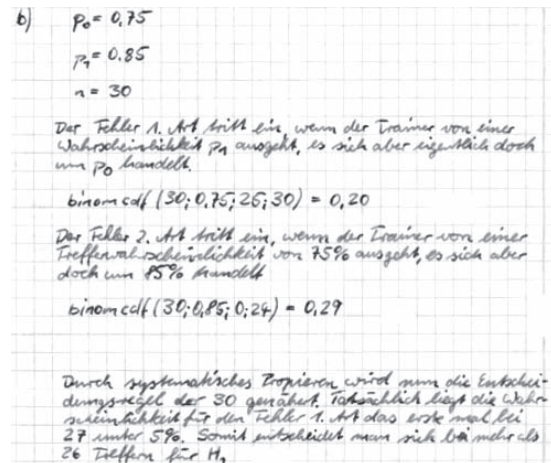 b) p₀ = 0,75
p₁ = 0.85
n = 30
Der Fehler 1. Art tritt ein, wenn der Trainer von einer
Wahrscheinlichkeit p₁ ausgeht, es sich aber eigentlich doch
um p₀ handelt.
binomcdf (30; 0,75; 25; 30) = 0,20
Der Fehler 2. Art tritt ein, wenn der Trainer von einer
Trefferwahrscheinlichkeit von 75% ausgeht, es sich aber
doch um 85% handelt
binomcdf (30; 0,85; 0; 24) = 0,29
Durch systematisches Propieren wird nun die Entschei-
dungsregel der 30 genähert. Tatsächlich liegt die Wahr-
scheinlichkeit für den Fehler 1. Art das erste mal bei
27 unter 5%. Somit entscheidet man sich bei mehr als
26 Treffern für H₁